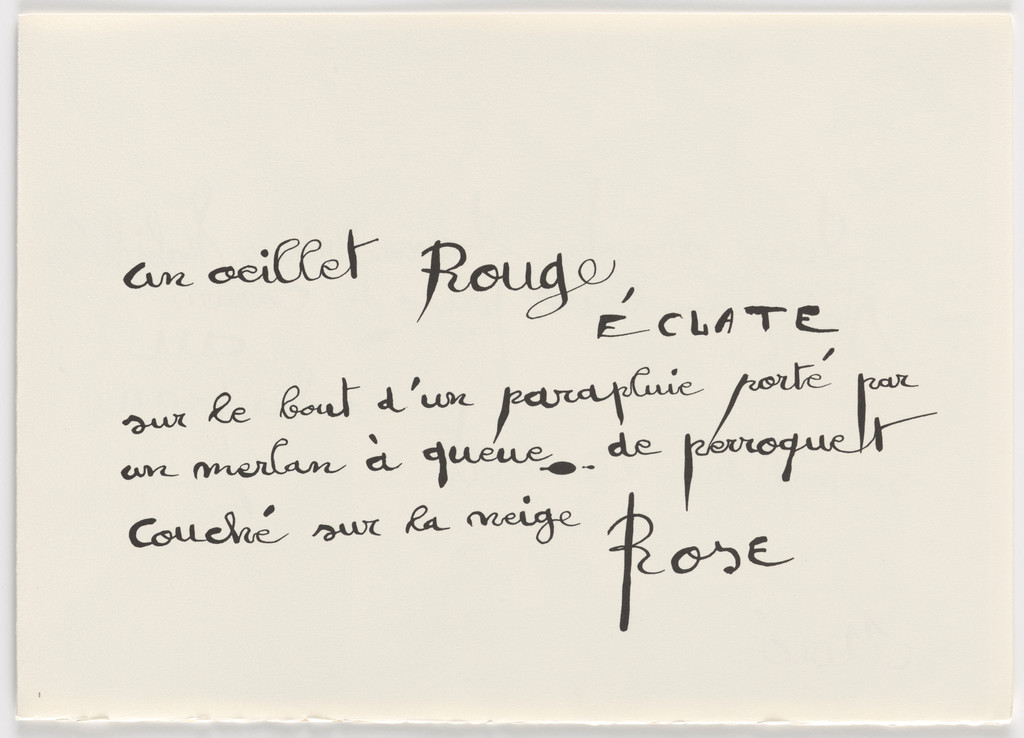 un oeillet Rouge
ÉCLATE
sur le bout d'un parapluie porté par
un merlan à queue de perroquet
couché sur la neige Rose